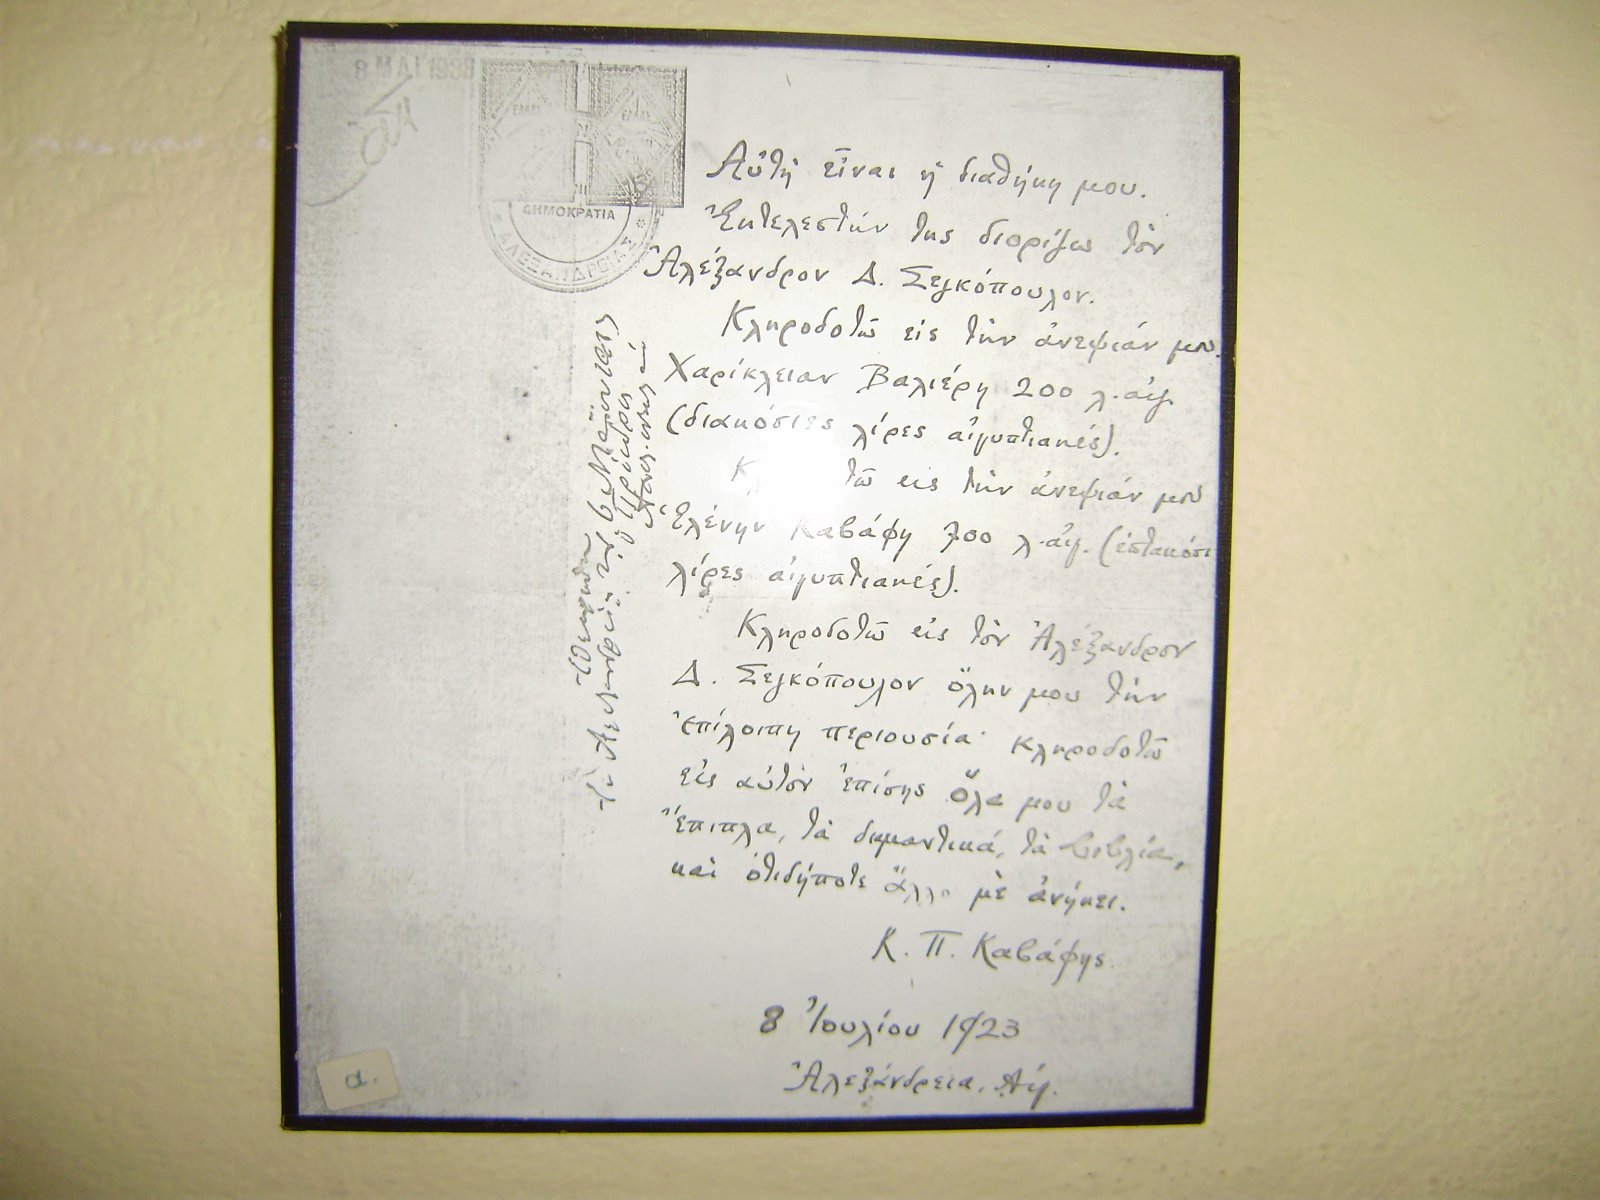 8 ΜΑΪ 1933
ΕΛΛΑΣ
ΕΛΛΑΣ
ΔΗΜΟΚΡΑΤΙΑ
* ΑΛΕΞΑΝΔΡΕΙΑΣ *
Αὐτὴ εἶναι ἡ διαθήκη μου.
Ἐκτελεστὴν της διορίζω τὸν
Ἀλέξανδρον Δ. Σεγκόπουλον.
Κληροδοτῶ εἰς τὴν ἀνεψιάν μου
Χαρίκλειαν Βαλιέρη 200 λ. αἰγ.
(διακόσιες λίρες αἰγυπτιακές).
τῶ εἰς τὴν ἀνεψιάν μου
Ἑλένην Καβάφη 700 λ. αἰγ. (ἑπτακόσι
λίρες αἰγυπτιακές).
Κληροδοτῶ εἰς τὸν Ἀλέξανδρον
Δ. Σεγκόπουλον ὅλην μου τὴν
ἐπίλοιπη περιουσία· κληροδοτῶ
εἰς αὐτὸν ἐπίσης ὅλα μου τὰ
ἔπιπλα, τὰ διαμαντικά, τὰ βιβλία,
καὶ ὁτιδήποτε ἄλλο μὲ ἀνήκει.
Κ. Π. Καβάφης
8 Ἰουλίου 1923
Ἀλεξάνδρεια. Αἴγ.
Ἐθεωρήθη
ὁ Πρόεδρος
α.